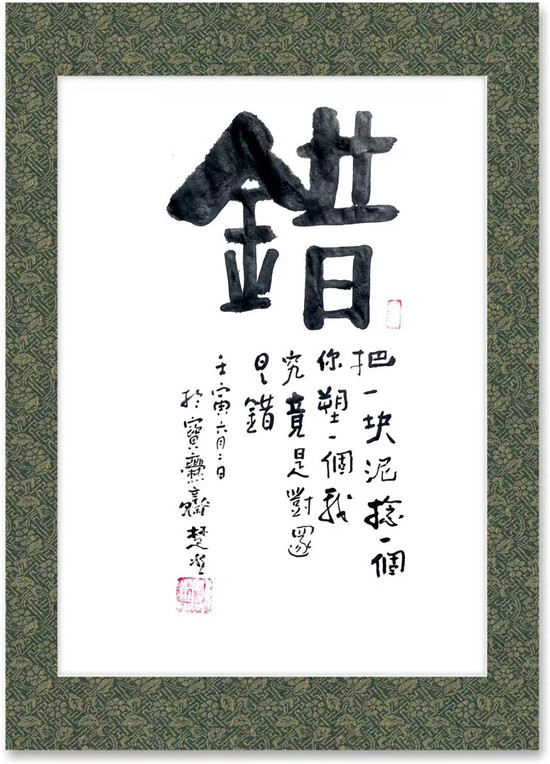 錯
把一块泥捻一個
你塑一個我
究竟是對還
是錯
壬寅六月二日
於寶齋楚